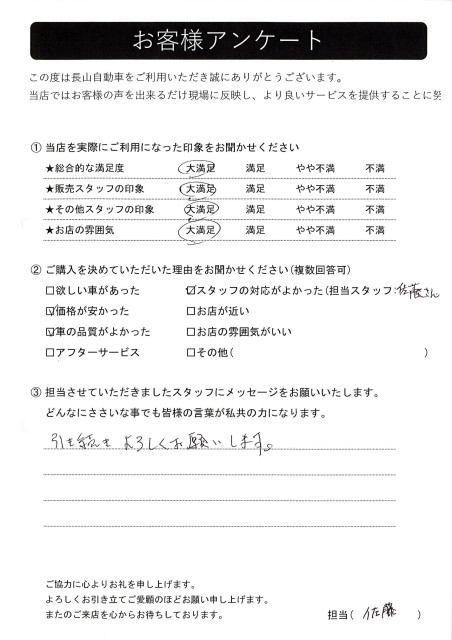 お客様アンケート
この度は長山自動車をご利用いただき誠にありがとうございます。
当店ではお客様の声を出来るだけ現場に反映し、より良いサービスを提供することに努
① 当店を実際にご利用になった印象をお聞かせください
★総合的な満足度 大満足 満足 やや不満 不満
★販売スタッフの印象 大満足 満足 やや不満 不満
★その他スタッフの印象 大満足 満足 やや不満 不満
★お店の雰囲気 大満足 満足 やや不満 不満
② ご購入を決めていただいた理由をお聞かせください(複数回答可)
□欲しい車があった ☑スタッフの対応がよかった(担当スタッフ:佐藤さん
☑価格が安かった □お店が近い
☑車の品質がよかった □お店の雰囲気がいい
□アフターサービス □その他( )
③ 担当させていただきましたスタッフにメッセージをお願いいたします。
どんなにささいな事でも皆様の言葉が私共の力になります。
引き続きよろしくお願いします。
ご協力に心よりお礼を申し上げます。
よろしくお引き立てご愛顧のほどお願い申し上げます。
またのご来店を心からお待ちしております。 担当( 佐藤 )